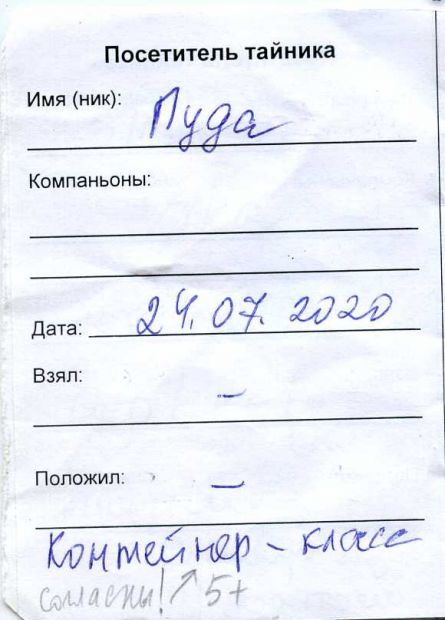 Посетитель тайника
Имя (ник): Пуда
Компаньоны:
Дата: 24.07.2020
Взял: –
Положил: –
Контейнер – класс
согласны! ↗ 5+